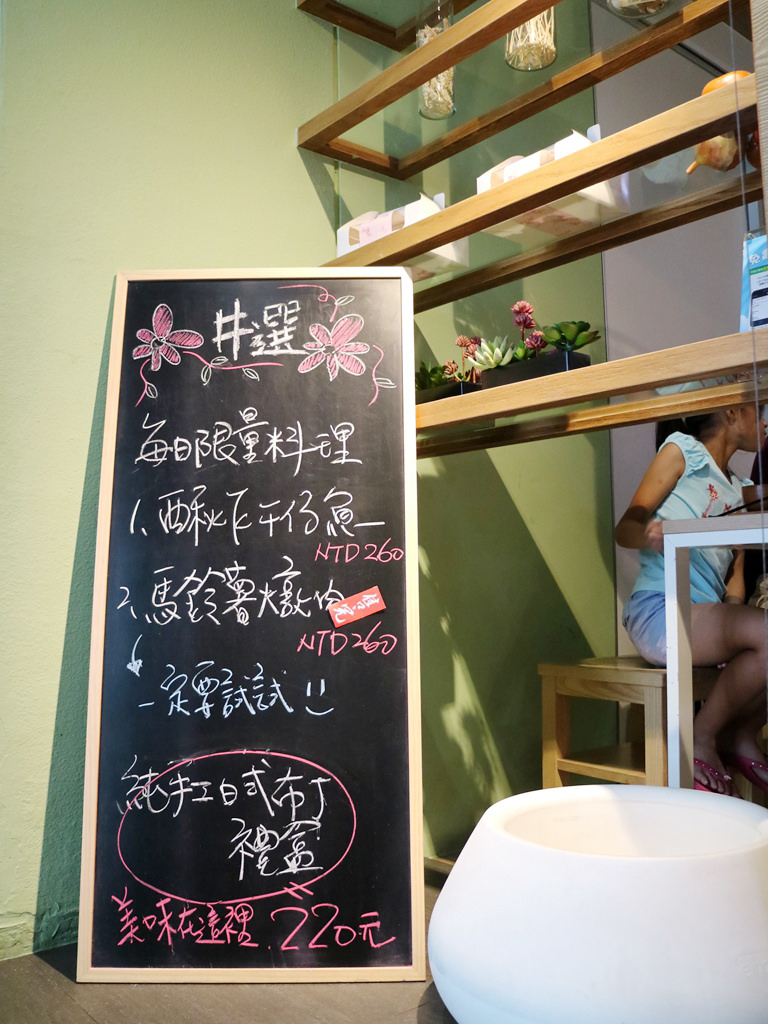 井選
每日限量料理
1、酥秋下午仔魚
NTD260
2、馬鈴薯燉肉
售完
NTD260
一定要試試
純手工日式布丁
禮盒
美味在這裡 220元